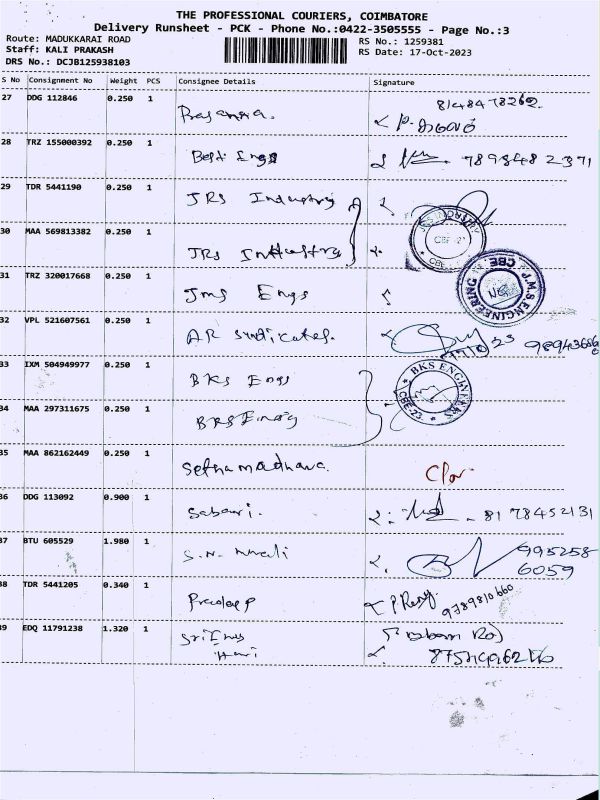 THE PROFESSIONAL COURIERS, COIMBATORE
Delivery Runsheet - PCK - Phone No.:0422-3505555 - Page No.:3
Route: MADUKKARAI ROAD
Staff: KALI PRAKASH
DRS No.: DCJB125938103
RS No.: 1259381
RS Date: 17-Oct-2023
S No Consignment No Weight PCS Consignee Details Signature
27 DDG 112846 0.250 1 Prasanna. 8148478262
28 TRZ 155000392 0.250 1 Best Engg 7898482371
29 TDR 5441190 0.250 1 JRS Industry
30 MAA 569813382 0.250 1 JRS Industry
JRS INDUSTRY
CBE-21
31 TRZ 320017668 0.250 1 Jms Engg
J.M.S. ENGINEERING
CBE
32 VPL 521607561 0.250 1 AR Syndicates.
33 IXM 504949977 0.250 1 BKS Engg
BKS ENGINEERS
CBE-23.
34 MAA 297311675 0.250 1
35 MAA 862162449 0.250 1 Sethu madhava.
36 DDG 113092 0.900 1 Sabari. 8178452131
37 BTU 605529 1.980 1 S.N. 995258
6059
38 TDR 5441205 0.340 1 Pradeep 9789810660
39 EDQ 11791238 1.320 1 Sri Engg
Hari